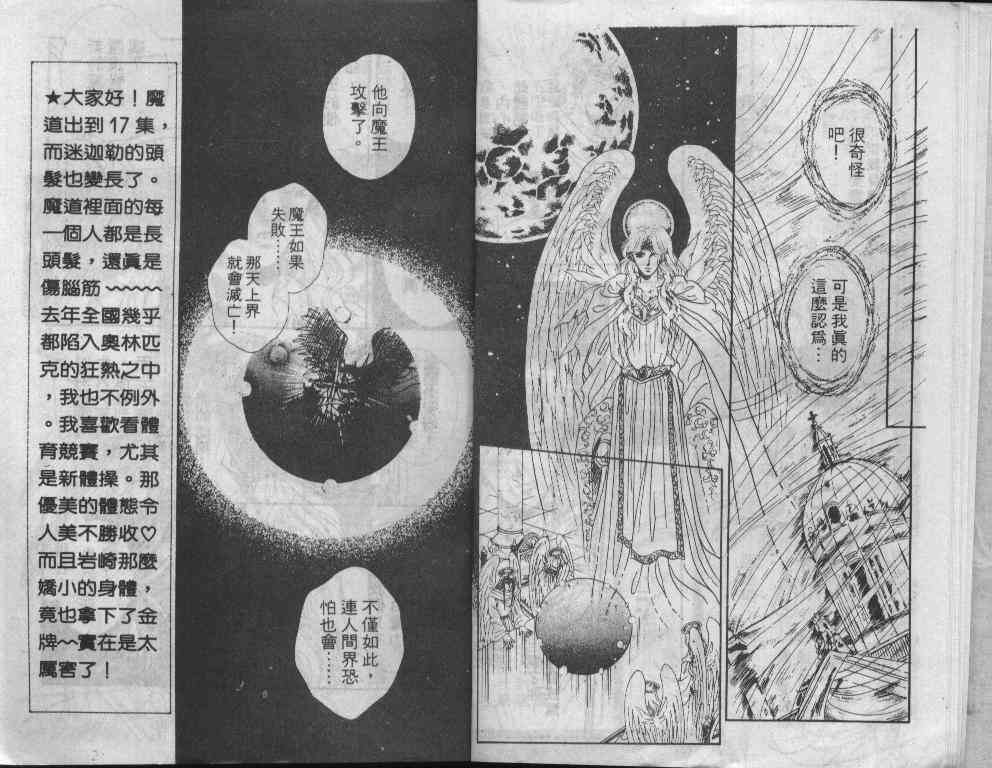 很奇怪
吧！
可是我真的
這麼認爲…
他向魔王
攻擊了。
魔王如果
失敗……
那天上界
就會滅亡！
不僅如此，
連人間界恐
怕也會……
★大家好！魔
道出到17集，
而迷迦勒的頭
髮也變長了。
魔道裡面的每
一個人都是長
頭髮，還眞是
傷腦筋～～～
去年全國幾乎
都陷入奧林匹
克的狂熱之中
，我也不例外
。我喜歡看體
育競賽，尤其
是新體操。那
優美的體態令
人美不勝收♡
而且岩崎那麼
嬌小的身體，
竟也拿下了金
牌～實在是太
厲害了！